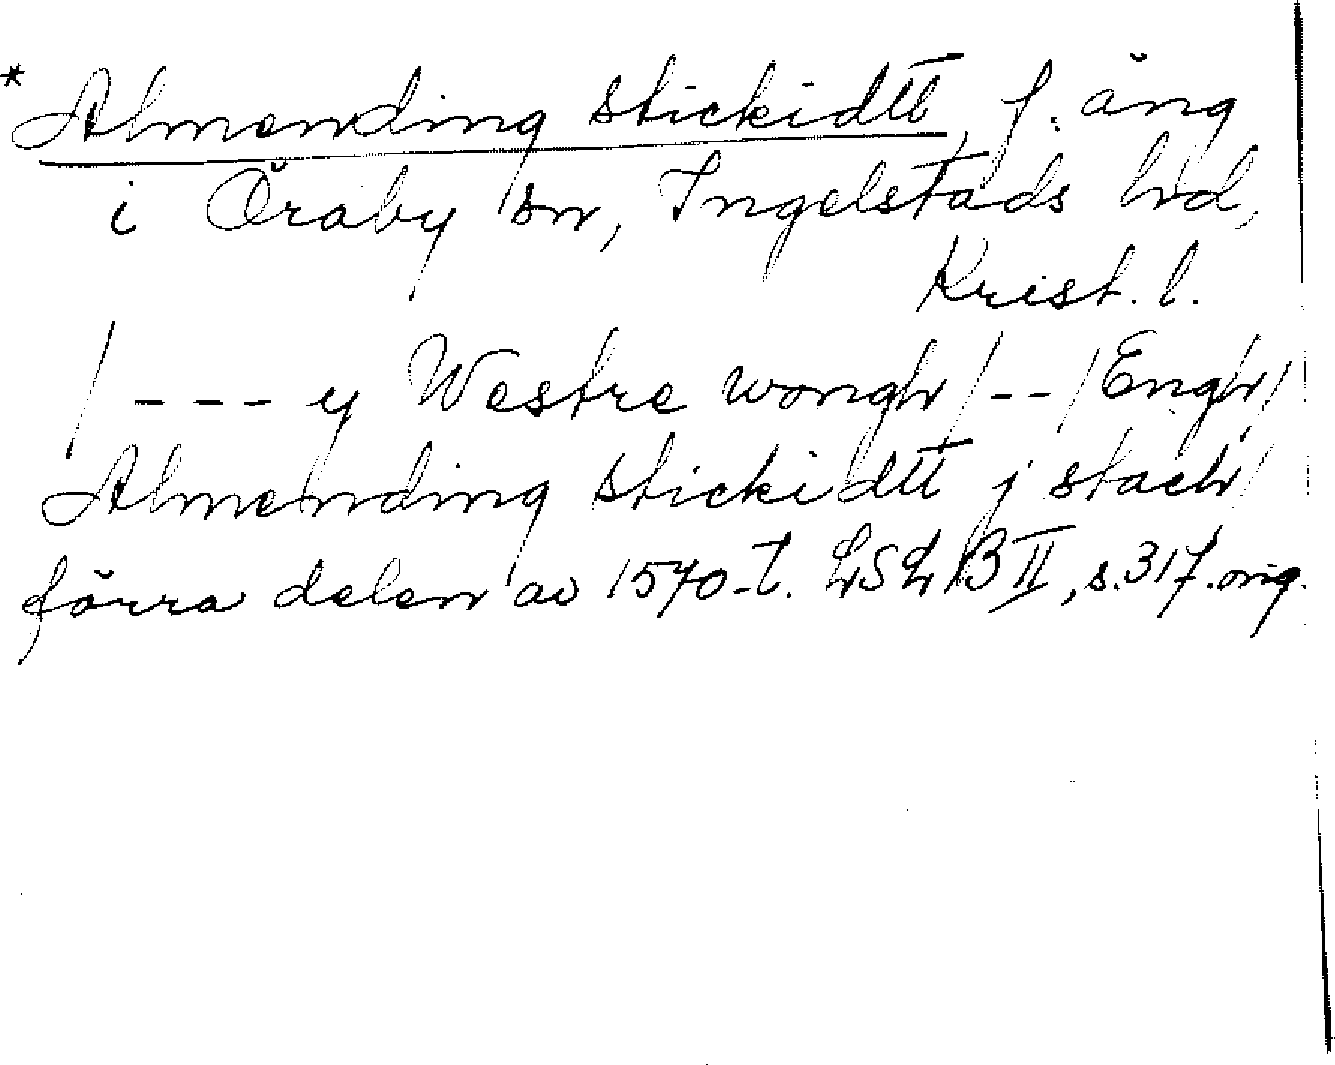 * Almending stickidtt, f. äng
i Öraby sn, Ingelstads hd,
Krist. l.
/ - - - y Westre wongh / - - / Engh /
Almending stickidtt j stach /
förra delen av 1570-t. LSL B II, s. 317. orig.